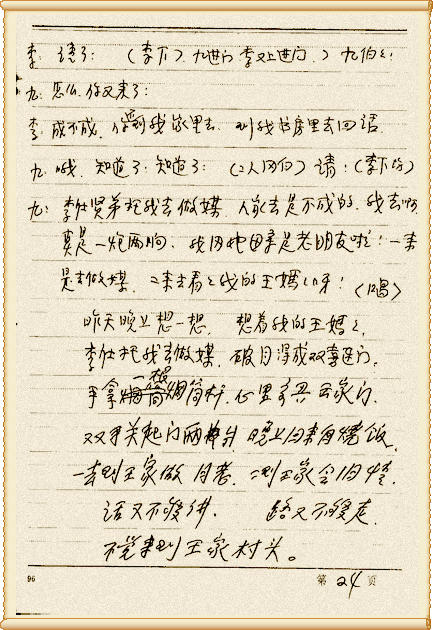 李：请了：（李下）九进门 李又上进门.）九伯伯：
九：怎么你又来了：
李：成不成，你到我家里去，到我书房里去回话
九：哦，知道了，知道了：（二人同白）请：（李下场）
九：李仕贤弟托我去做媒，人家去是不成的，我去呵
真是一炮两响，我同他田李是老朋友啦！一来
是去做媒，二来去看看我的王妈妈呀！（唱）
昨天晚上想一想，想着我的王妈妈，
李仕托我去做媒，破月得成双喜进门，
手拿一根烟筒杆，心里
双手关起门两，晚上回来自烧饭，
一来到王家做月老，二到王家会旧情，
话又不够讲，路又不够走，
不觉来到王家村头。
96 第24页